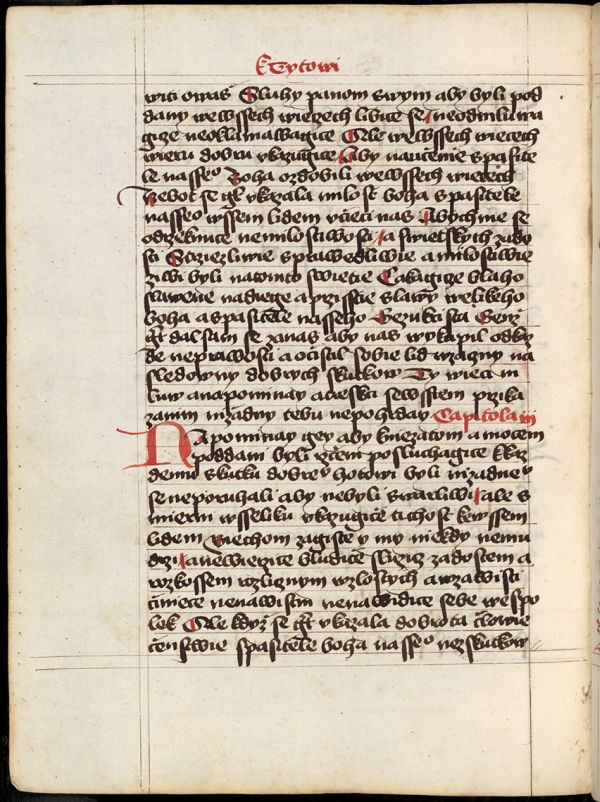 K Tytowi
witi o was Sluhy panom swym aby byli pod
dany we wssech wieczech libice se neodmluwa
gize neoklamawagice Ale we wssech wiecech
wieru dobru vkazugice Aby naučenie spasite
le nasseº boha ozdobili we wssech wiecech
Nebot se gt vkazala milost boha spasitele
nasseº wssem lidem vcieci nas Abychme se
odrzeknuce nemilostiwosti a swietskych zado
sti Strziezliwie sprawedliwie a milostiwie
ziwi byli na tomto swietie Cakagize blaho
slawene nadiege a przisstie slawy welikeho
boha a spasitele nasseho Gezu krista Genz
gt dal sam se za nas aby nas wykupil od kaz
de neprawosti a ocistil sobie lid wzacny na
sledowny dobrych skutkow Ty wieci m
luw a napominay a tresci se wssiem przika
zanim nizadny tebu nepohrday Capitola iii
Napominay gey aby kniezatom a mocem
poddani byli rzecem posluchagice k kaz
demu skutku dobreº hotowi byli nizadneº
se neporuhali aby nebyli swarliwi ale s
mierni wsseliku vkazugice tichost ke wssem
lidem Wiechom zagiste y my niekdy nemu
drzi a newierzice bludice sluzic zadostem a
rozkossem rozlicnym w zlostech a w zawisti
ciniece nenawistni nenawidice sebe wespo
lek Ale kdyz se gt vkazala dobrota clowie
censtwie spasitele boha nasseº ne z skutkow